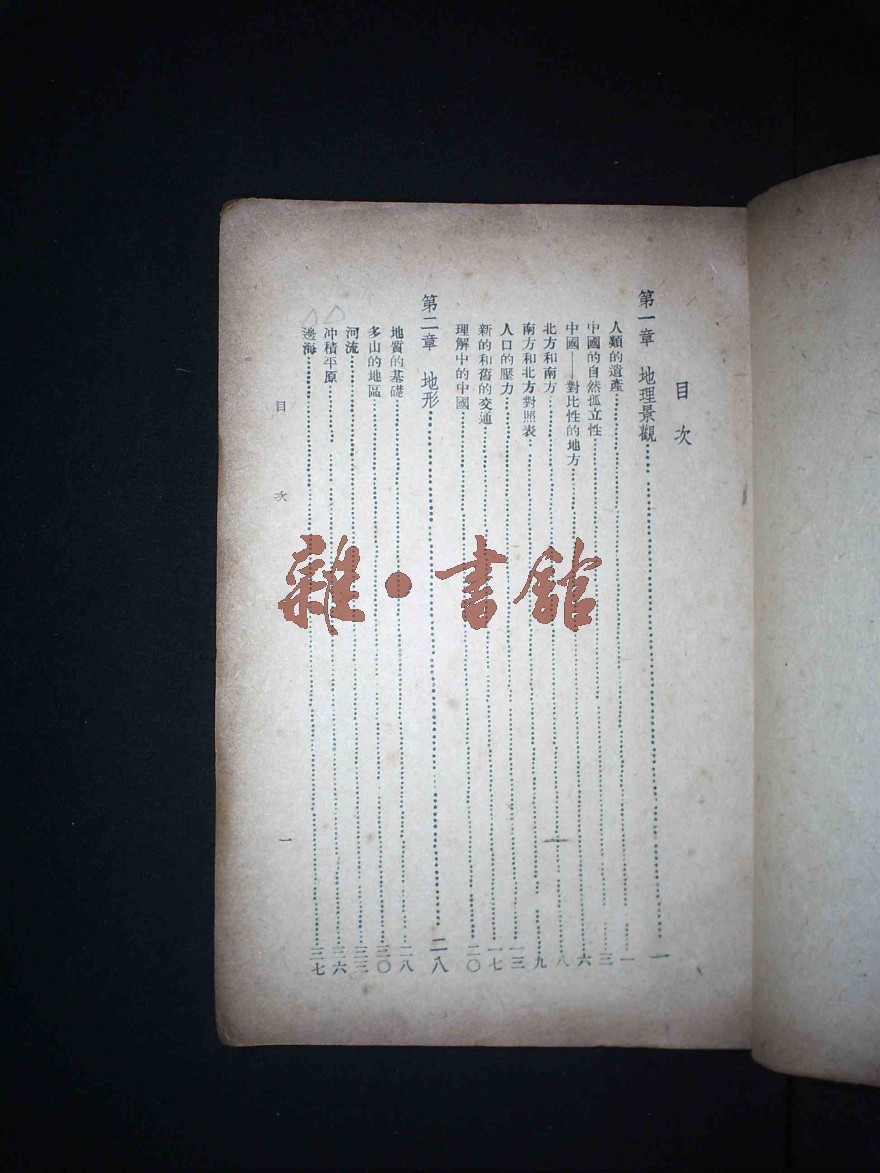 目次
第一章 地理景觀……一
人類的遺產……一
中國的自然孤立性……三
中國——對比性的地方……六
北方和南方……八
南方和北方對照表……九
人口的壓力……一三
新的和舊的交通……一七
理解中的中國……二〇
第二章 地形……二八
地質的基礎……二八
多山的地區……三〇
河流……三三
冲積平原……三六
邊海……三七
目次 一
雜·書館